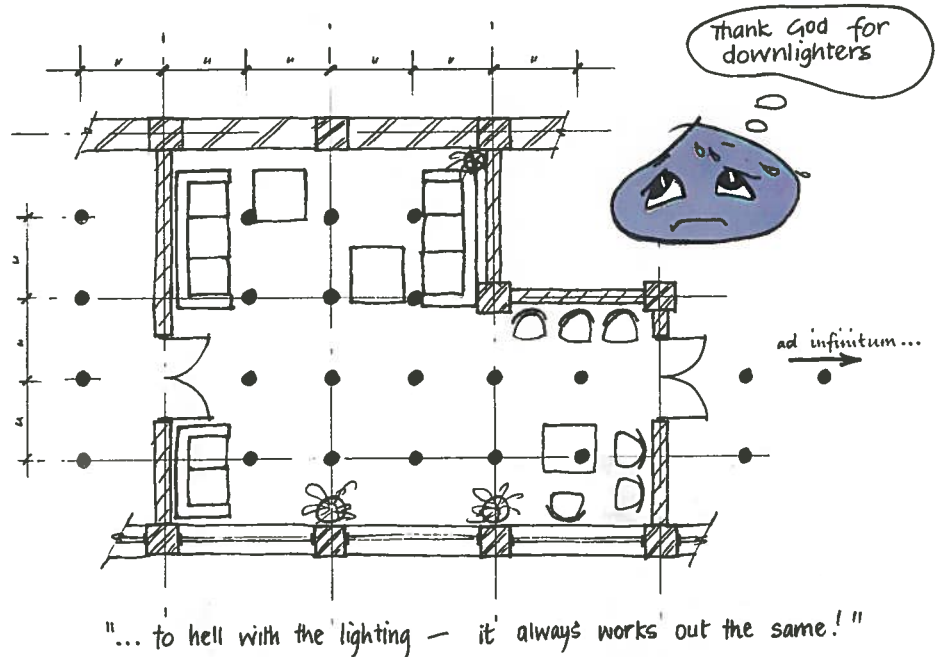 Thank God for
downlighters
ad infinitum...
"... to hell with the lighting — it always works out the same!"